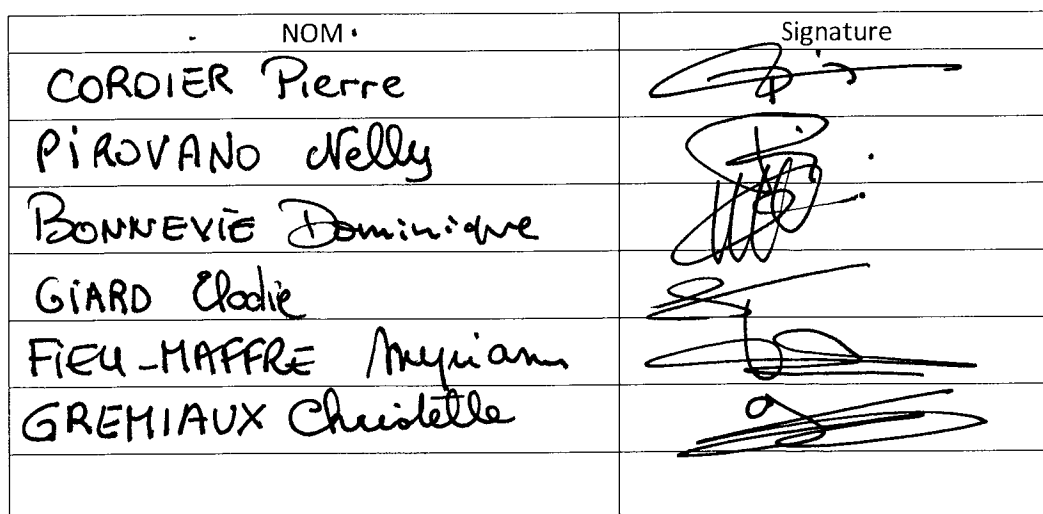 NOM Signature
CORDIER Pierre
PiROVANO Nelly
BONNEViE Dominique
GiARD Elodie
FiEU-MAFFRE Myriam
GREMIAUX Christelle